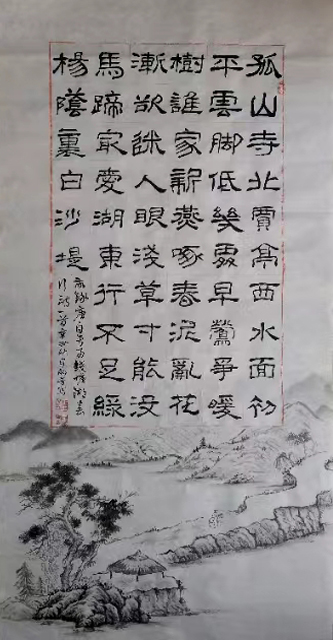 孤山寺北賈亭西水面初
平雲脚低幾處早鶯爭暖
樹誰家新燕啄春泥亂花
漸欲迷人眼淺草才能沒
馬蹄最愛湖東行不足綠
楊陰裏白沙堤
唐白居易錢塘湖春
行詩一首